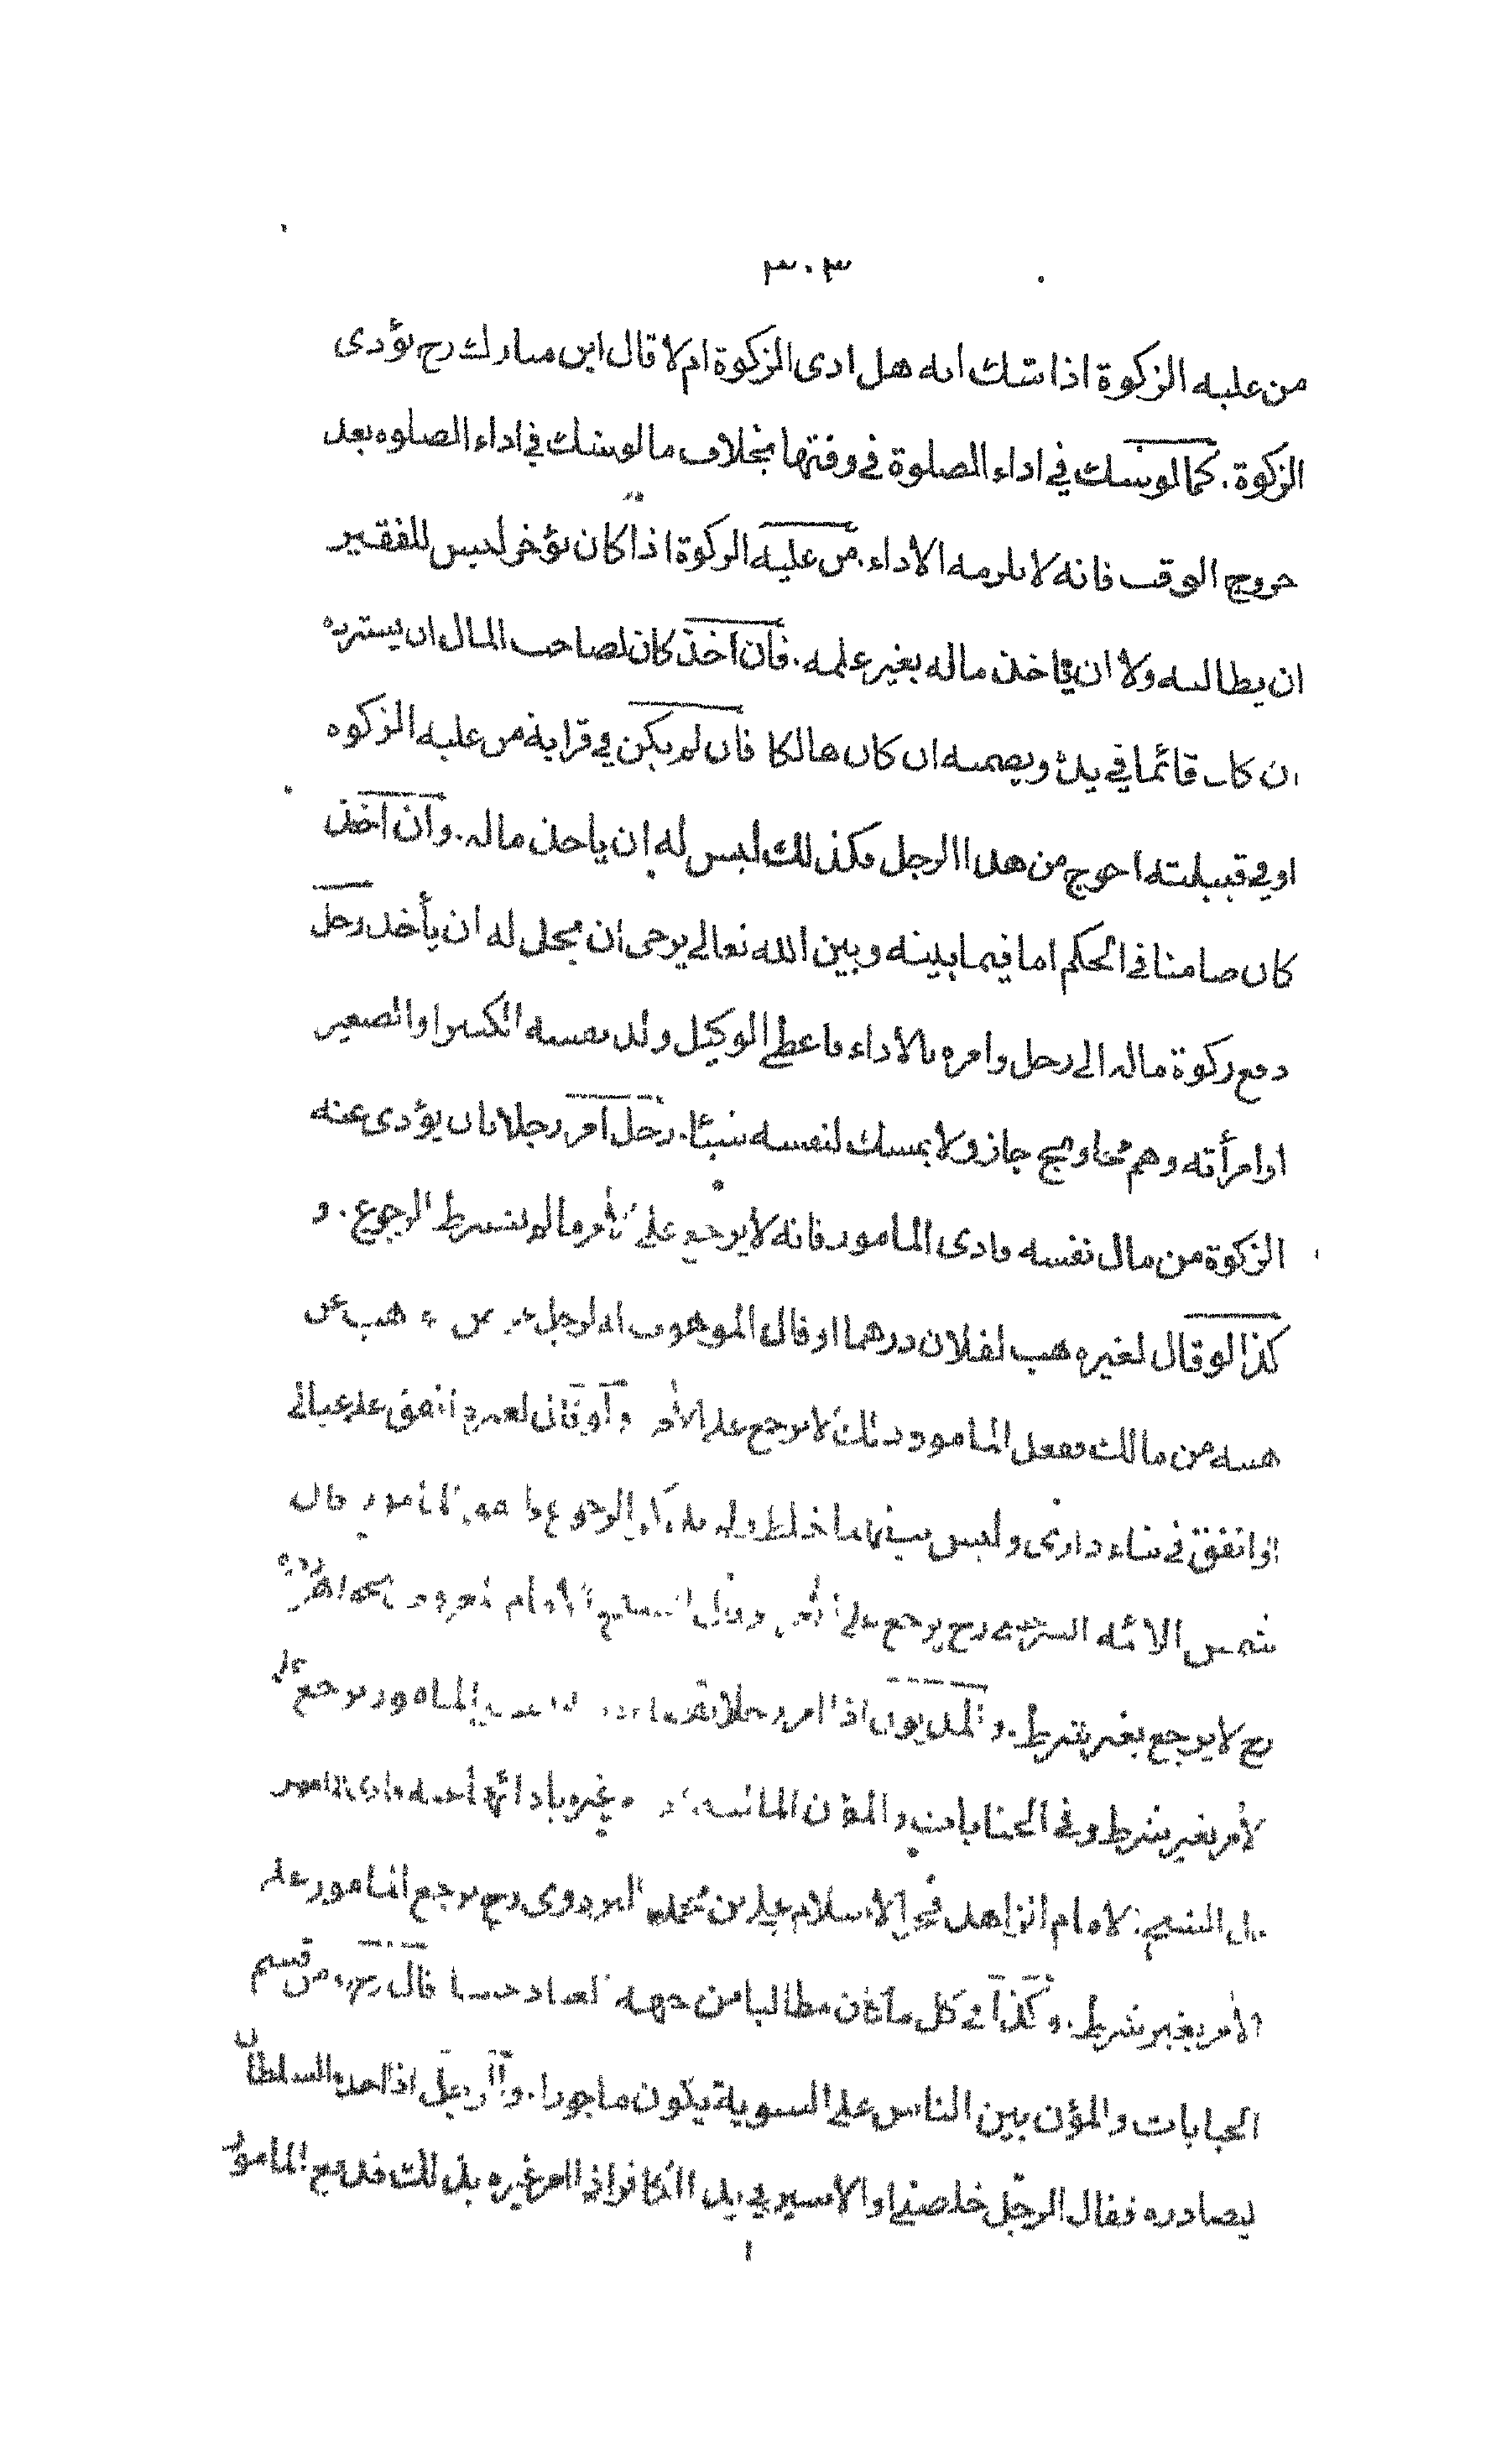 ٣٠٣
من عليه الزكوة اذا شك انه هل ادى الزكوة ام لا قال ابن مبارك رح يؤدى
الزكوة . كما لو شك في اداء الصلوة في وقتها بخلاف ما لو شك في اداء الصلوه بعد
خروج الوقت فانه لا يلزمه الاداء . من عليه الزكوة اذا كان يؤخر ليس للفقير
ان يطالبه ولا ان ياخذ ماله بغير علمه . فان اخذ كان لصاحب المال ان يسترده
ان كان قائما في يده ويضمنه ان كان هالكا فان لم يكن في قرابة من عليه الزكوه
او في قبيلته احوج من هذا الرجل فكذلك ليس له ان ياخذ ماله . وان اخذ
كان ضامنا في الحكم اما فيما بينه وبين الله تعالى يرجى ان يحل له ان يأخذ رجل
دفع زكوة ماله الى رجل وامره بالاداء فاعطى الوكيل ولد نفسه الكبير او الصغير
او امرأته وهم محاويج جاز ولا يمسك لنفسه شيئا . رجل امر رجلا بان يؤدى عنه
الزكوة من مال نفسه فادى المامور فانه لا يرجع على الآمر ما لم يشترط الرجوع . و
كذا لو قال لغيره هب لفلان درهما او قال الموهوب له لرجل هب عن
هبه من مالك ففعل المامور ذلك لا يرجع على الآمر ولو قال لغيره انفق على عيالى
او انفق في بناء دارى وليس بينهما خلط ولم يذكر الرجوع فانفق المأمور قال
شمس الائمه السرخسى رح يرجع على الآمر وقال الشيخ الامام المعروف بخواهرزاده
رح لا يرجع بغير شرط . والمديون اذا امر رجلا المامور يرجع على
الآمر بغير شرط وفى الجنايات والمؤن المالية غيره بادائها فادى المامور
قال الشيخ الامام الزاهد فخر الاسلام على بن محمد البزدوى رح يرجع المامور على
الآمر بغير شرط . وكذا في كل ما كان مطالبا من جهة العباد حسا قال رح ومن قسم
الجبايات والمؤن بين الناس على السوية يكون ماجورا . والرجل اذا اخذه السلطان
ليصادره فقال الرجل خلصنى او الاسير في يد الكافر اذا امر غيره بذلك فدفع المامور